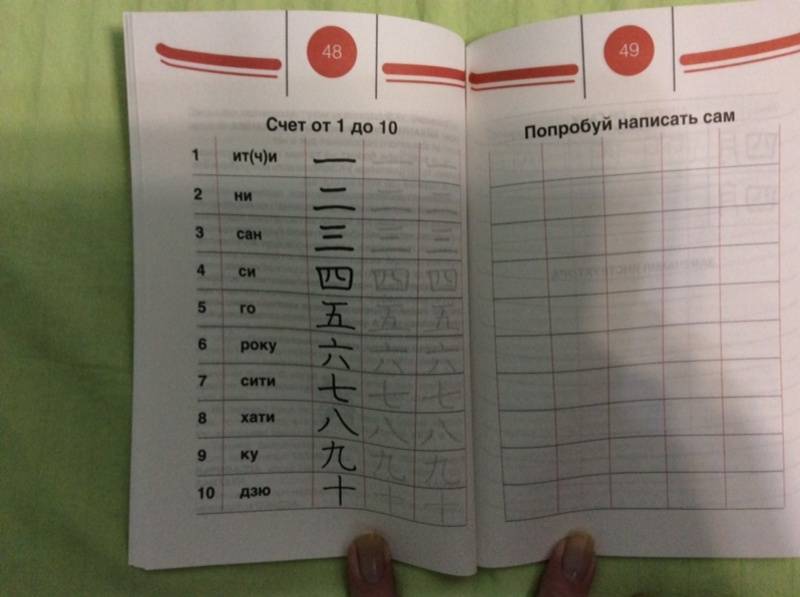 48
Счет от 1 до 10
1 ит(ч)и 一 一 一
2 ни 二 二 二
3 сан 三 三 三
4 си 四 四 四
5 го 五 五 五
6 року 六 六 六
7 сити 七 七 七
8 хати 八 八 八
9 ку 九 九 九
10 дзю 十 十 十
49
Попробуй написать сам